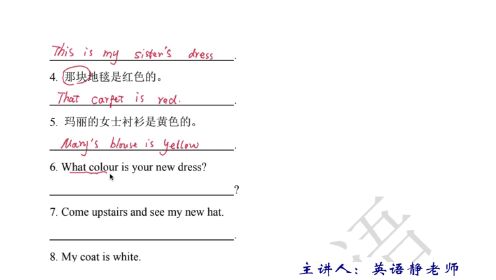 This is my sister's dress.
4. 那块地毯是红色的。
That carpet is red.
5. 玛丽的女士衬衫是黄色的。
Mary's blouse is yellow.
6. What colour is your new dress?
?
7. Come upstairs and see my new hat.
8. My coat is white.
语
主讲人：英语静老师